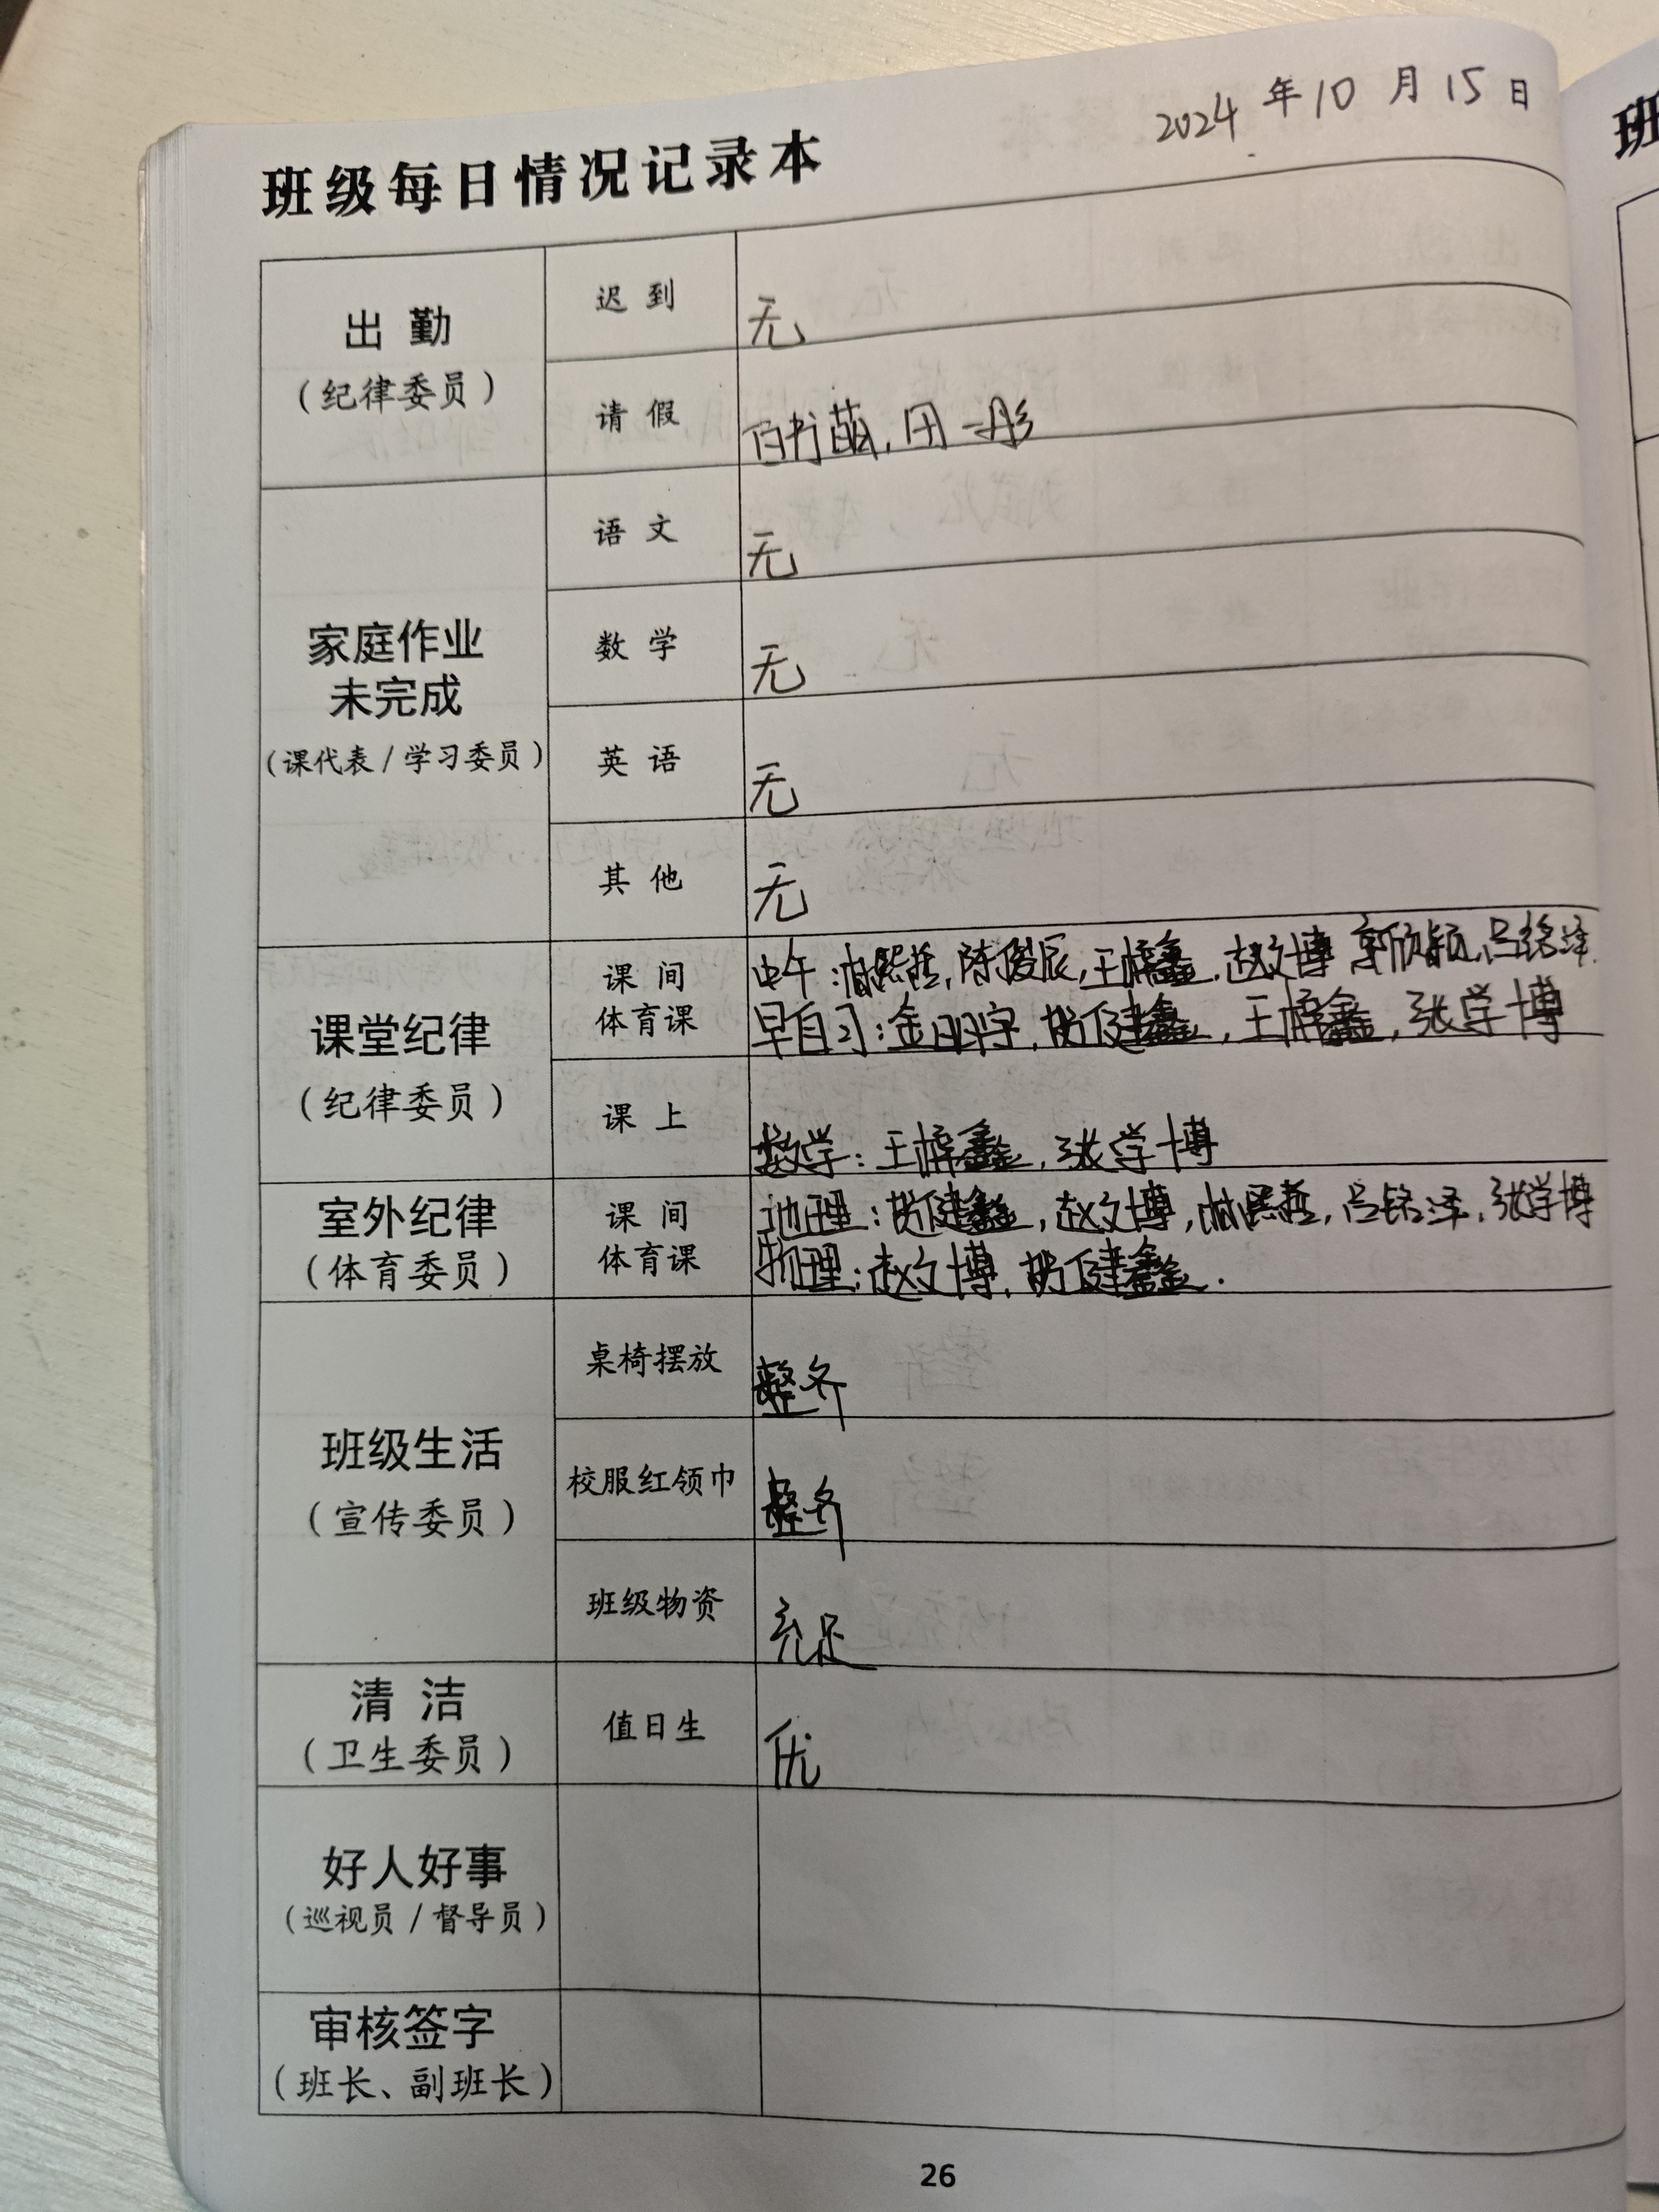 2024年10月15日
班级每日情况记录本
班
出勤
（纪律委员）
迟到
无
请假
白书萌，田一彤
家庭作业
未完成
（课代表/学习委员）
语文
无
数学
无
英语
无
其他
无
课堂纪律
（纪律委员）
课间
体育课
中午：陈俊辰，王梓鑫，赵文博 郭欣颖，吕铭泽
早自习：金，王梓鑫，张学博
课上
数学：王梓鑫，张学博
室外纪律
（体育委员）
课间
体育课
地理：赵文博，吕铭泽，张学博
物理：赵文博，
班级生活
（宣传委员）
桌椅摆放
整齐
校服红领巾
整齐
班级物资
充足
清洁
（卫生委员）
值日生
优
好人好事
（巡视员/督导员）
审核签字
（班长、副班长）
26